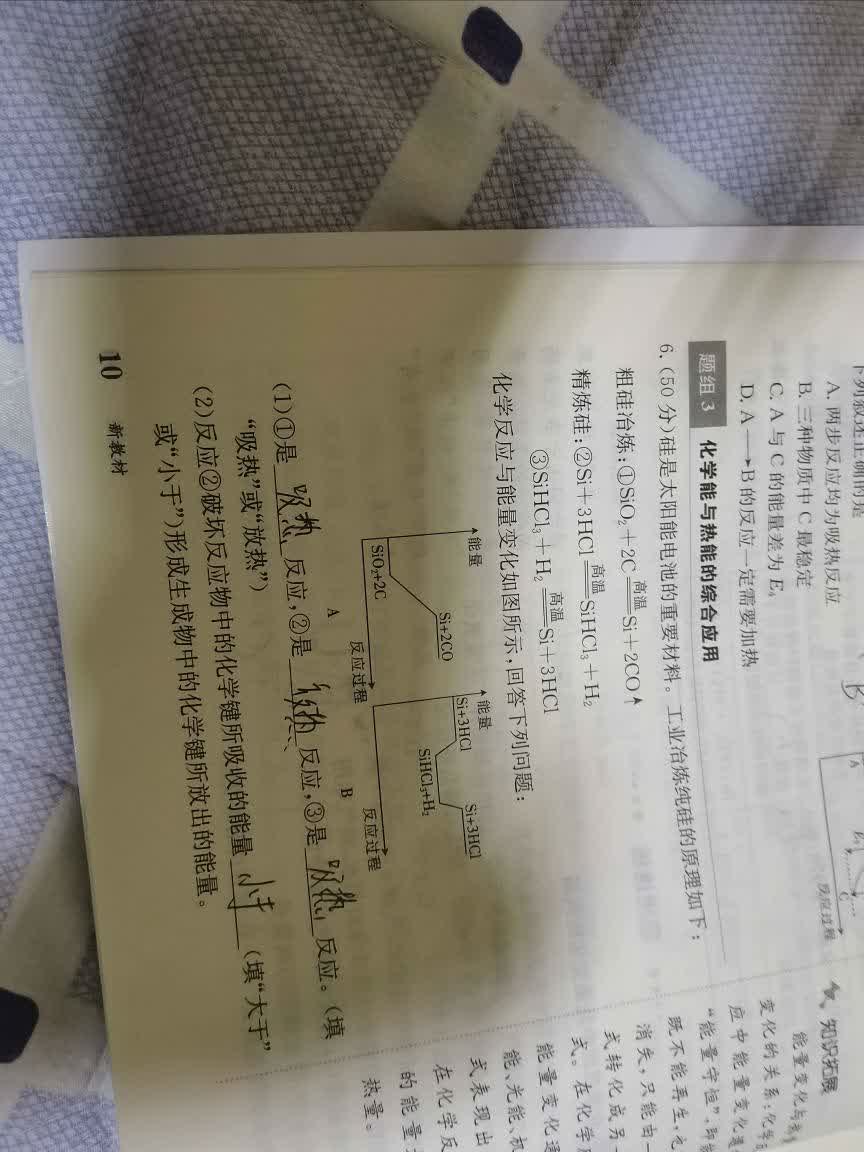 A. 两步反应均为吸热反应
B. 三种物质中 C 最稳定
C. A 与 C 的能量差为 E₄
D. A⟶B 的反应一定需要加热
B
A
反应过程
题组 3 化学能与热能的综合应用
6. (50 分)硅是太阳能电池的重要材料。工业冶炼纯硅的原理如下:
粗硅冶炼:①SiO₂+2C 高温 Si+2CO↑
精炼硅:②Si+3HCl 高温 SiHCl₃+H₂
③SiHCl₃+H₂ 高温 Si+3HCl
化学反应与能量变化如图所示,回答下列问题:
能量
Si+2CO
SiO₂+2C
反应过程
A
能量
Si+3HCl
Si+3HCl
SiHCl₃+H₂
反应过程
B
(1)①是 吸热 反应,②是 放热 反应,③是 吸热 反应。(填
“吸热”或“放热”)
(2)反应②破坏反应物中的化学键所吸收的能量 小于 (填“大于”
或“小于”)形成生成物中的化学键所放出的能量。
10 新教材
知识拓展
能量变化与
变化的关系:化学
应中能量变化遵
“能量守恒”,即能
既不能再生,也
消失,只能由一
式转化成另一
式。在化学
能量变化
能、光能、机
式表现出
在化学反
的能量
热量。